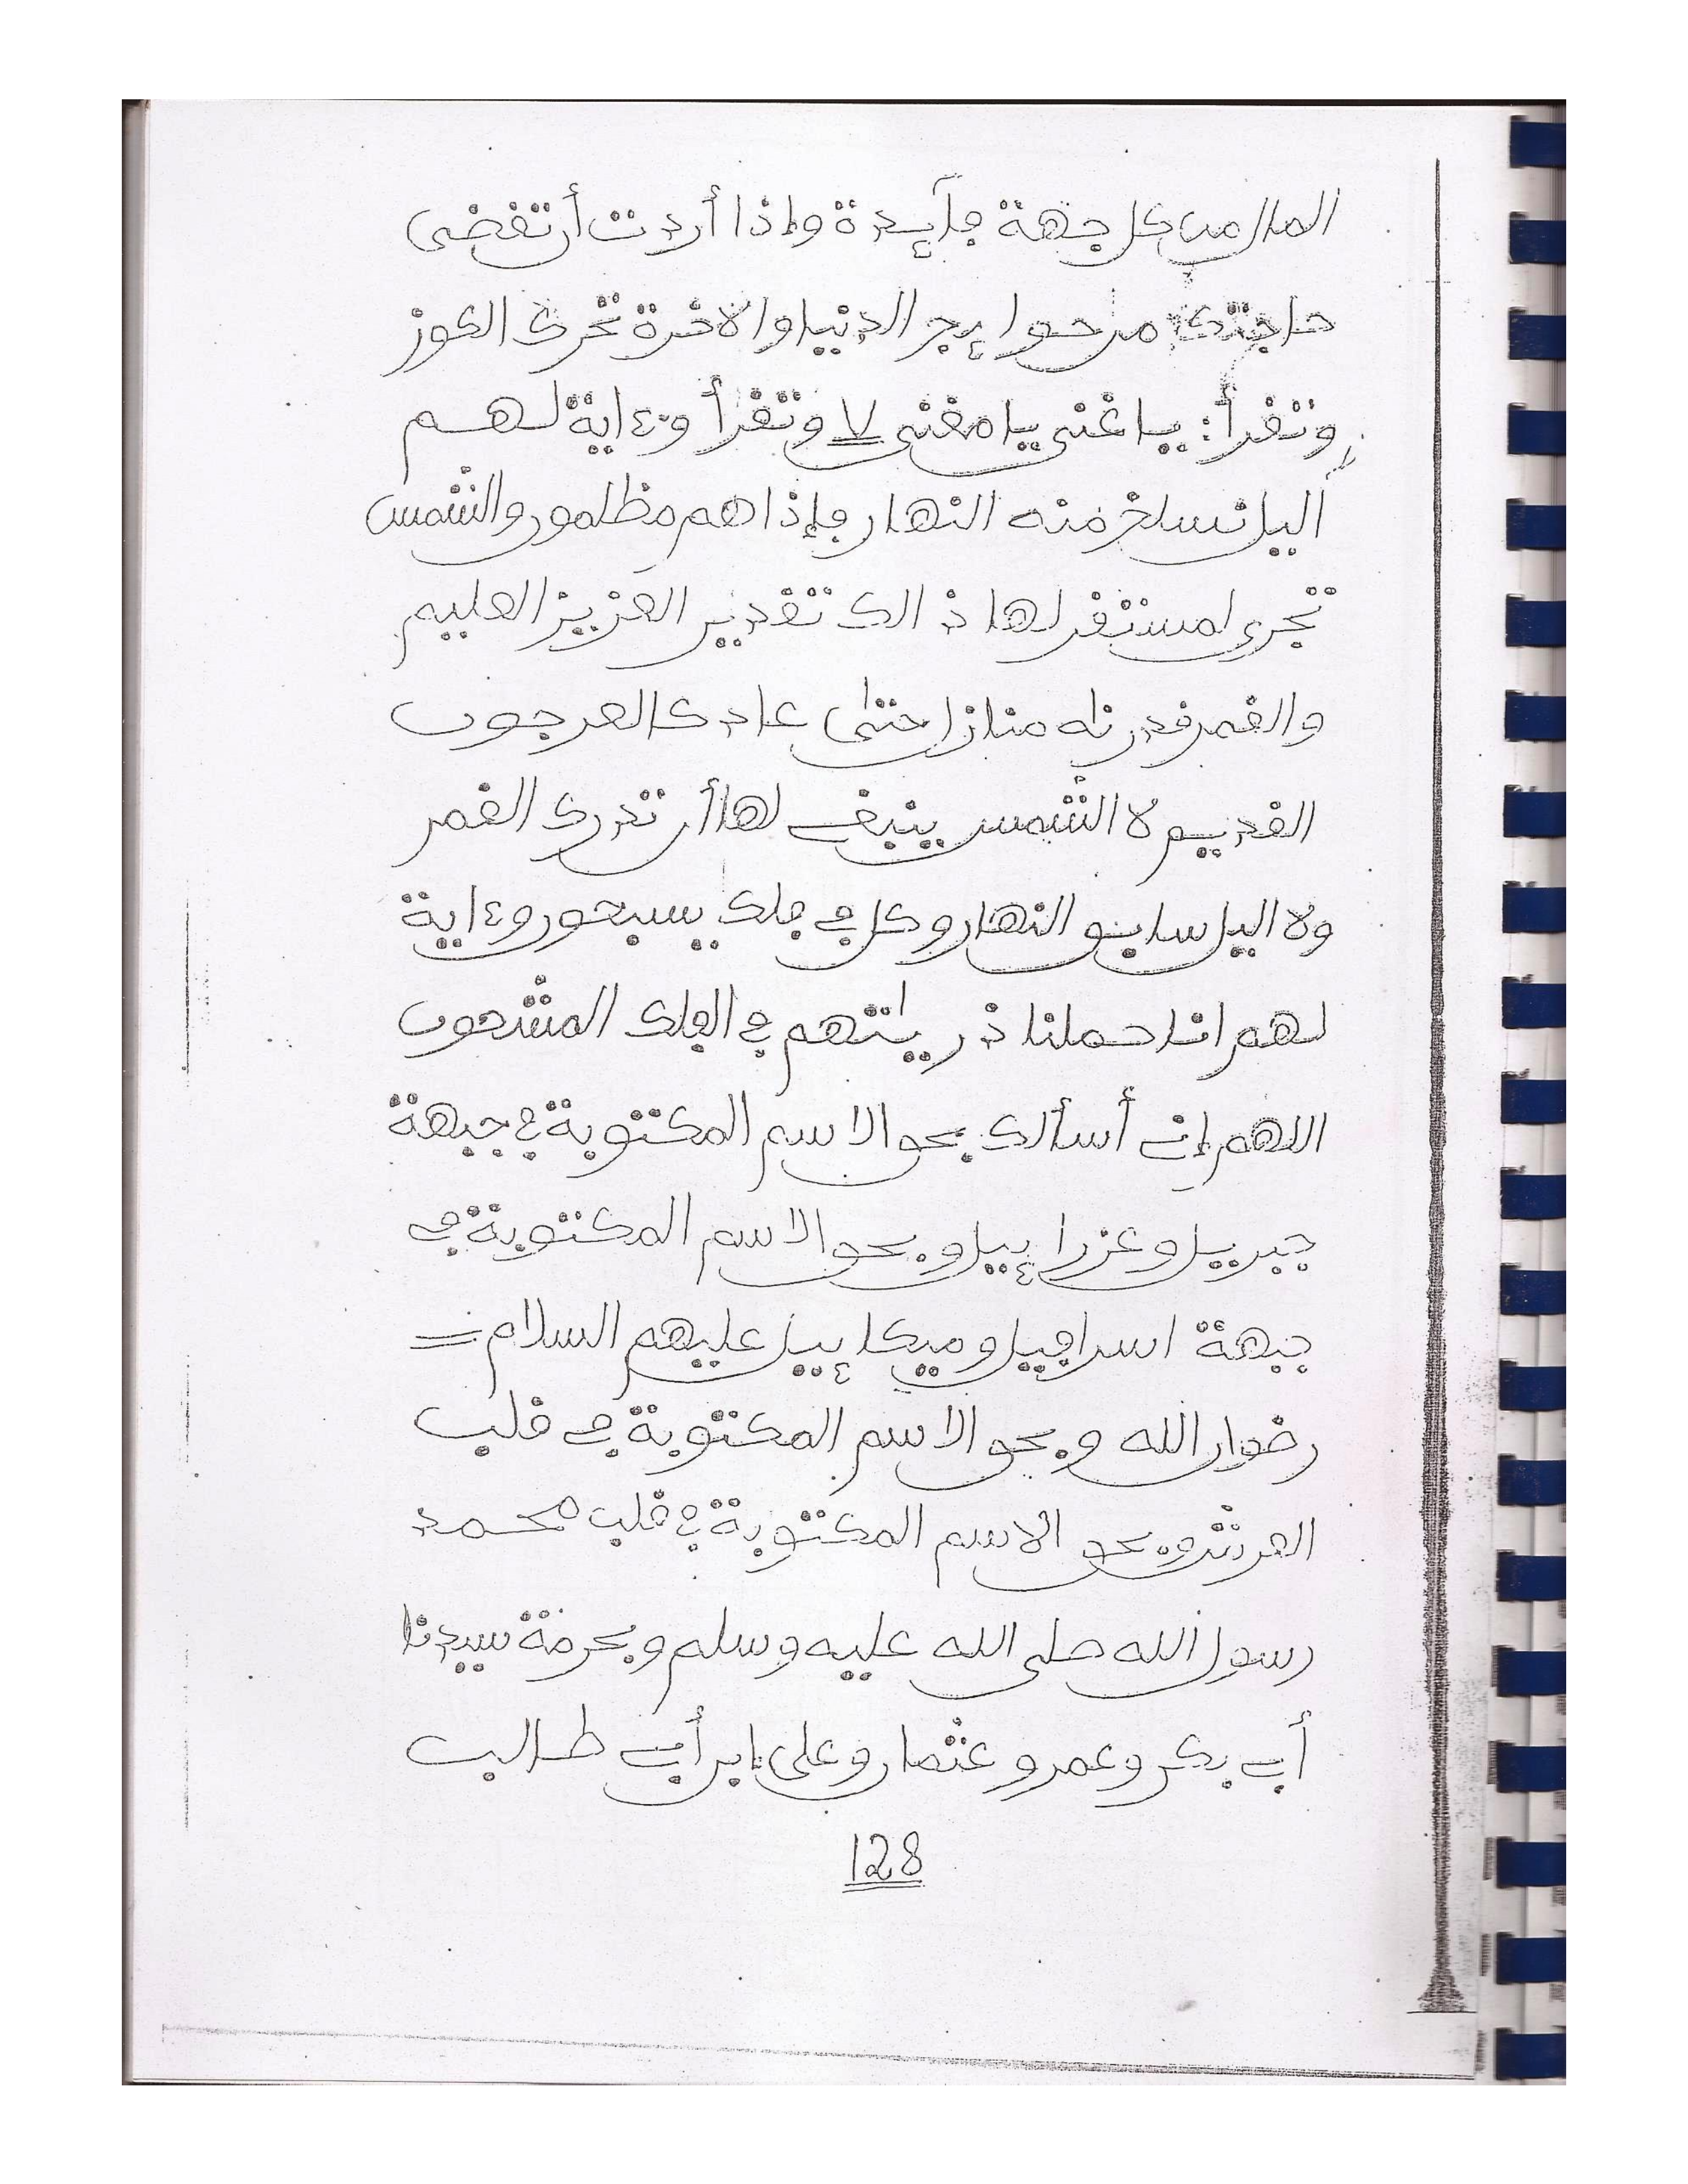 المال من كل جهة فآيدة وإذا أردت أن تقضى
حاجتك من حوايج الدنيا والاخرة تحرك الكوز
وتقرأ: يا غنى يا مغنى 7 وتقرأ وءاية لهم
اليل نسلخ منه النهار فإذا هم مظلمون والشمس
تجرى لمستقر لها ذالك تقدير العزيز العليم
والقمر قدرنه منازل حتى عاد كالعرجون
القديم لا الشمس ينبغى لها أن تدرك القمر
ولا اليل سابق النهار وكل في فلك يسبحون وءاية
لهم انا حملنا ذريتهم في الفلك المشحون
اللهم إني أسألك بحق الاسم المكتوبة في جبهة
جبريل وعزراءيل وبحق الاسم المكتوبة في
جبهة اسرافيل وميكاءيل عليهم السلام =
رضوان الله وبحق الاسم المكتوبة في قلب
العرش وبحق الاسم المكتوبة في قلب محمد
رسول الله صلى الله عليه وسلم وبحرمة سيدنا
أبي بكر وعمر وعثمان وعلى ابن أبي طالب
128